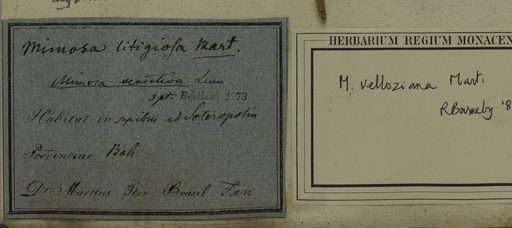 Mimosa litigiosa Mart.
Mimosa sensitiva Linn
spt. Bentham 1873
Habitat in sepibus ad Soteropolin
Provinciae Bah.
Dr Martius Iter Brasil. Jan
HERBARIUM REGIUM MONACEN
M. velloziana Mart.
R Barneby '8